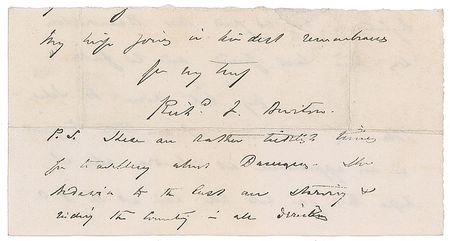 My wife joins in kindest remembrances
for my
Richd. F. Burton.
P.S. These are rather ticklish times
for travelling about Damascus. The
Bedawin to the East are starving &
riding the Country in all directions